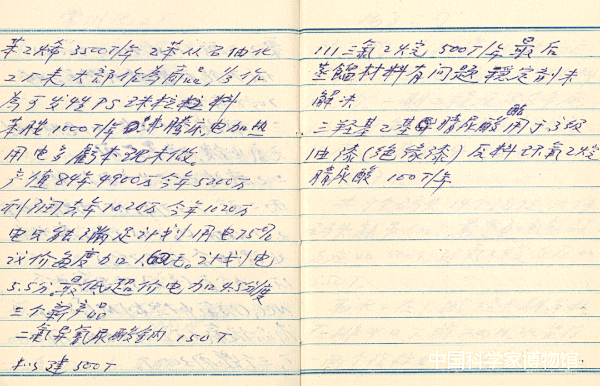 苯乙烯 3500T/年 乙苯从石油化
工厂来, 大部作为商品, 少作
为可发性PS珠粒粒料
苯胺 1000T/年 沸腾床, 电加热
用电多 亏本 现未做。
产值84年4900万 今年5200万
利润去年1020万 今年1020万
电只能满足计划用电75%
议价每度加 计划电
5.5分。最低超价电加45分/度
三个新产品
二氯异氰尿酸钠 150T
扩建 500T
111三氯乙烷 500T/年 最后
蒸馏材料有问题 稳定剂未
解决
三羟基乙基异腈尿酸酯用于3级
油漆(绝缘漆) 原料环氧乙烷
腈尿酸 100T/年
中国科学家博物馆